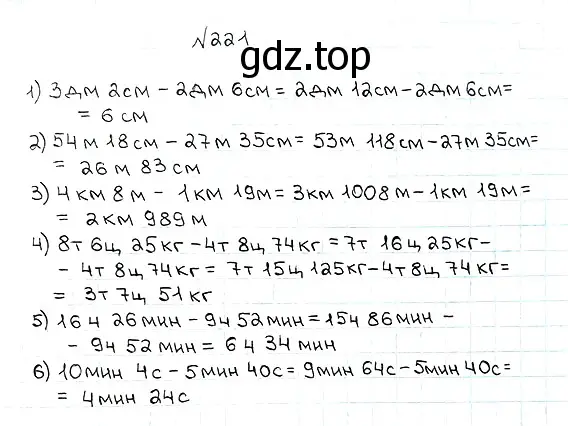 №221
gdz.top
1) 3дм 2см - 2дм 6см = 2дм 12см - 2дм 6см =
= 6 см
2) 54 м 18 см - 27 м 35см = 53м 118 см - 27м 35см =
= 26 м 83 см
3) 4 км 8 м - 1 км 19м = 3км 1008 м - 1км 19м =
= 2км 989 м
4) 8т 6ц 25кг - 4т 8ц 74кг = 7т 16ц 25кг -
- 4т 8ц 74кг = 7т 15ц 125кг - 4т 8ц 74кг =
= 3т 7ц 51 кг
5) 16 ч 26 мин - 9ч 52 мин = 15ч 86 мин -
- 9ч 52 мин = 6 ч 34 мин
6) 10мин 4с - 5 мин 40с = 9мин 64с - 5мин 40с =
= 4мин 24с